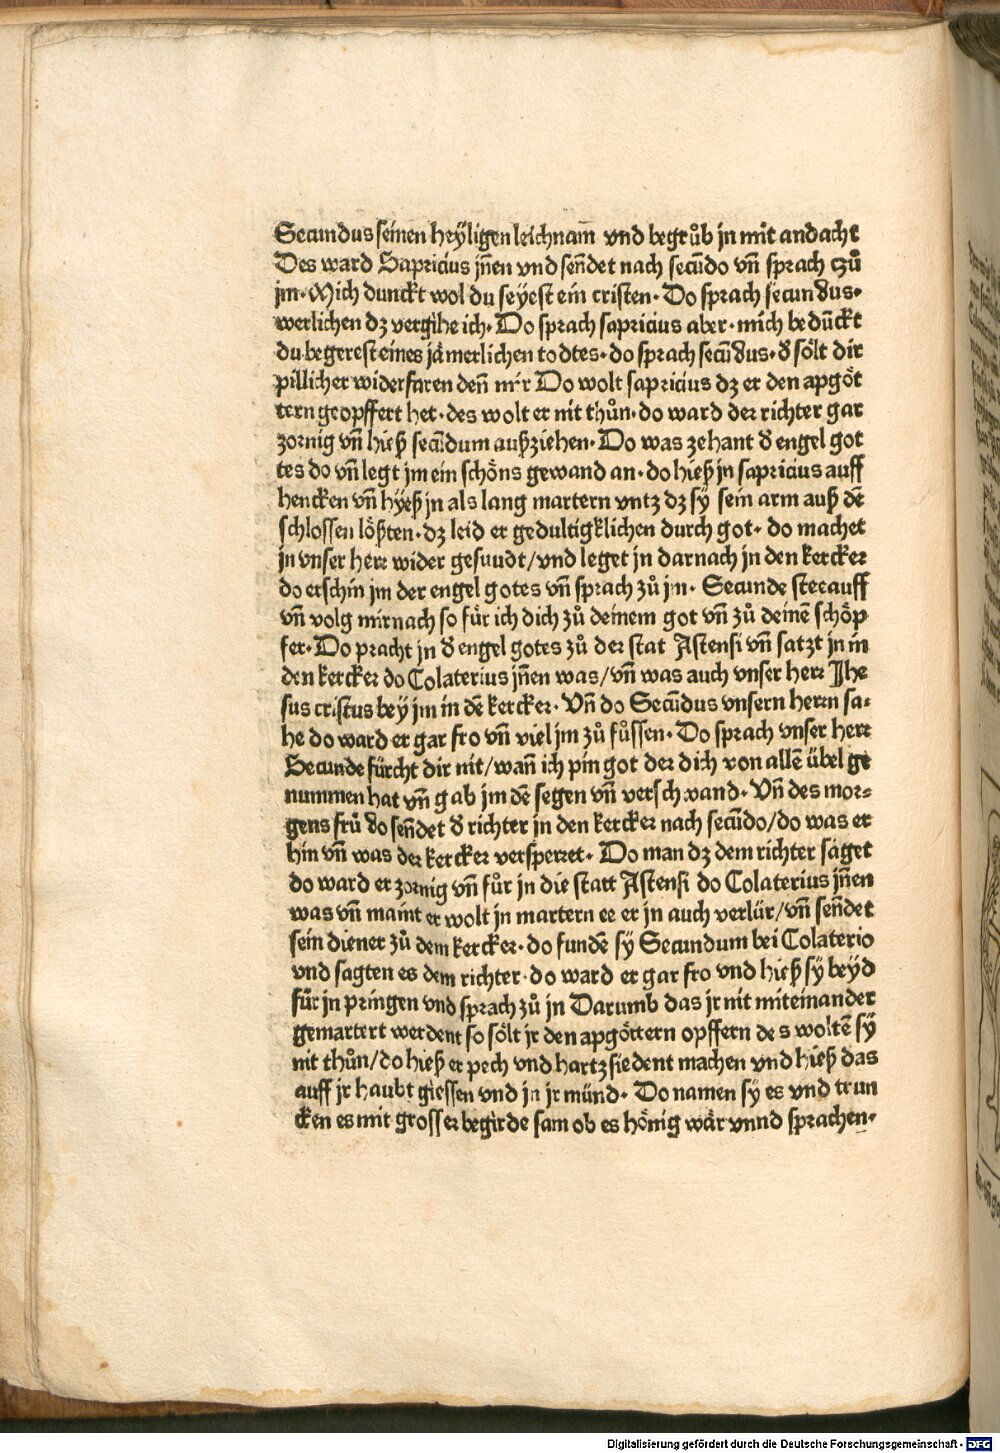 Secundus seinen heÿligen leichnam̄ vnd begrůb jn mit andacht
Des ward Sapricius jn̄en vnd sen̄det nach secūdo vn̄ sprach czů
jm· Mich dunckt wol du seÿest ein cristen· Do sprach secundus·
werlichen dz vergihe ich· Do sprach sapricius aber· mich bedūckt
du begerest eines jämerlichen todtes· do sprach secūdus· d sölt dir
pillicher widerfaren den̄ mir Do wolt sapricius dz er den apgöt
tern geopffert het· des wolt er nit thůn· do ward der richter gar
zornig vn̄ hieß secūdum außziehen· Do was zehant d engel got
tes do vn̄ legt jm ein schöns gewand an· do hieß jn sapricius auff
hencken vn̄ hÿeß jn als lang martern vntz dz sÿ sein arm auß dē
schlossen lößten· dz leid er gedultigklichen durch got· do machet
jn vnser herr wider gesundt/vnd leget jn darnach jn den kercker
do erschin jm der engel gotes vn̄ sprach zů jm· Secunde stee auff
vn̄ volg mir nach so für ich dich zů deinem got vn̄ zů deinē schöp
fer· Do pracht jn d engel gotes zů der stat Astensi vn̄ satzt jn in
den kercker do Colaterius jn̄en was/vn̄ was auch vnser herr Jhe
sus cristus beÿ jm in dē kercker· Vn̄ do Secūdus vnsern herrn sa-
he do ward er gar fro vn̄ viel jm zů fůssen· Do sprach vnser herr
Secunde fürcht dir nit/wan̄ ich pin got der dich von allē übel ge
nummen hat vn̄ gab jm dē segen vn̄ verschwand· Vn̄ des mor-
gens frů do sen̄det d richter in den kercker nach secūdo/do was er
hin vn̄ was der kercker versperret· Do man dz dem richter saget
do ward er zornig vn̄ fůr jn die statt Astensi do Colaterius jn̄en
was vn̄ maint er wolt jn martern ee er jn auch verlür/vn̄ sen̄det
sein diener zů dem kercker· do fundē sÿ Secundum bei Colaterio
vnd sagten es dem richter· do ward er gar fro vnd hieß sÿ beÿd
für jn pringen vnd sprach zů jn Darumb das jr nit miteinander
gemartert werdent so sölt jr den apgöttern opffern des woltē sÿ
nit thůn/do hieß er pech vnd hartz siedent machen vnd hieß das
auff jr haubt giessen vnd jn jr münd· Do namen sy es vnd trun
cken es mit grosser begirde sam ob es hönig wär vnnd sprachen·
Digitalisierung gefördert durch die Deutsche Forschungsgemeinschaft - DFG